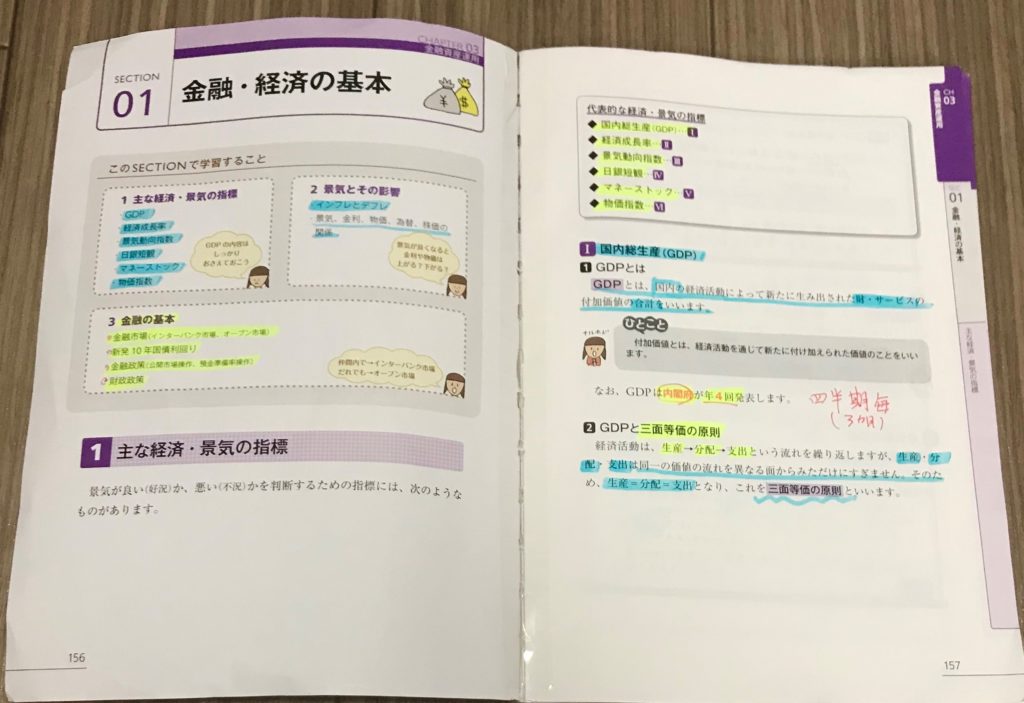 SECTION
01
CHAPTER 03
金融資産運用
金融・経済の基本
¥
$
このSECTIONで学習すること
1 主な経済・景気の指標
・GDP
・経済成長率
・景気動向指数
・日銀短観
・マネーストック
・物価指数
GDPの内容は
しっかり
おさえておこう
2 景気とその影響
・インフレとデフレ
・景気、金利、物価、為替、株価の
関係
景気が良くなると
金利や物価は
上がる?下がる?
3 金融の基本
・金融市場(インターバンク市場、オープン市場)
・新発10年国債利回り
・金融政策(公開市場操作、預金準備率操作)
・財政政策
仲間内で→インターバンク市場
だれでも→オープン市場
1 主な経済・景気の指標
景気が良い(好況)か、悪い(不況)かを判断するための指標には、次のような
ものがあります。
156
代表的な経済・景気の指標
◆ 国内総生産(GDP)…Ⅰ
◆ 経済成長率…Ⅱ
◆ 景気動向指数…Ⅲ
◆ 日銀短観…Ⅳ
◆ マネーストック…Ⅴ
◆ 物価指数…Ⅵ
Ⅰ 国内総生産(GDP)
1 GDPとは
GDPとは、国内の経済活動によって新たに生み出された財・サービスの
付加価値の合計をいいます。
ひとこと
付加価値とは、経済活動を通じて新たに付け加えられた価値のことをいい
ます。
なお、GDPは内閣府が年4回発表します。
四半期毎
(3ヵ月)
2 GDPと三面等価の原則
経済活動は、生産→分配→支出という流れを繰り返しますが、生産・分
配・支出は同一の価値の流れを異なる面からみただけにすぎません。そのた
め、生産=分配=支出となり、これを三面等価の原則といいます。
CH
03
金融資産運用
SEC
01
金融・経済の基本
主な経済・景気の指標
157